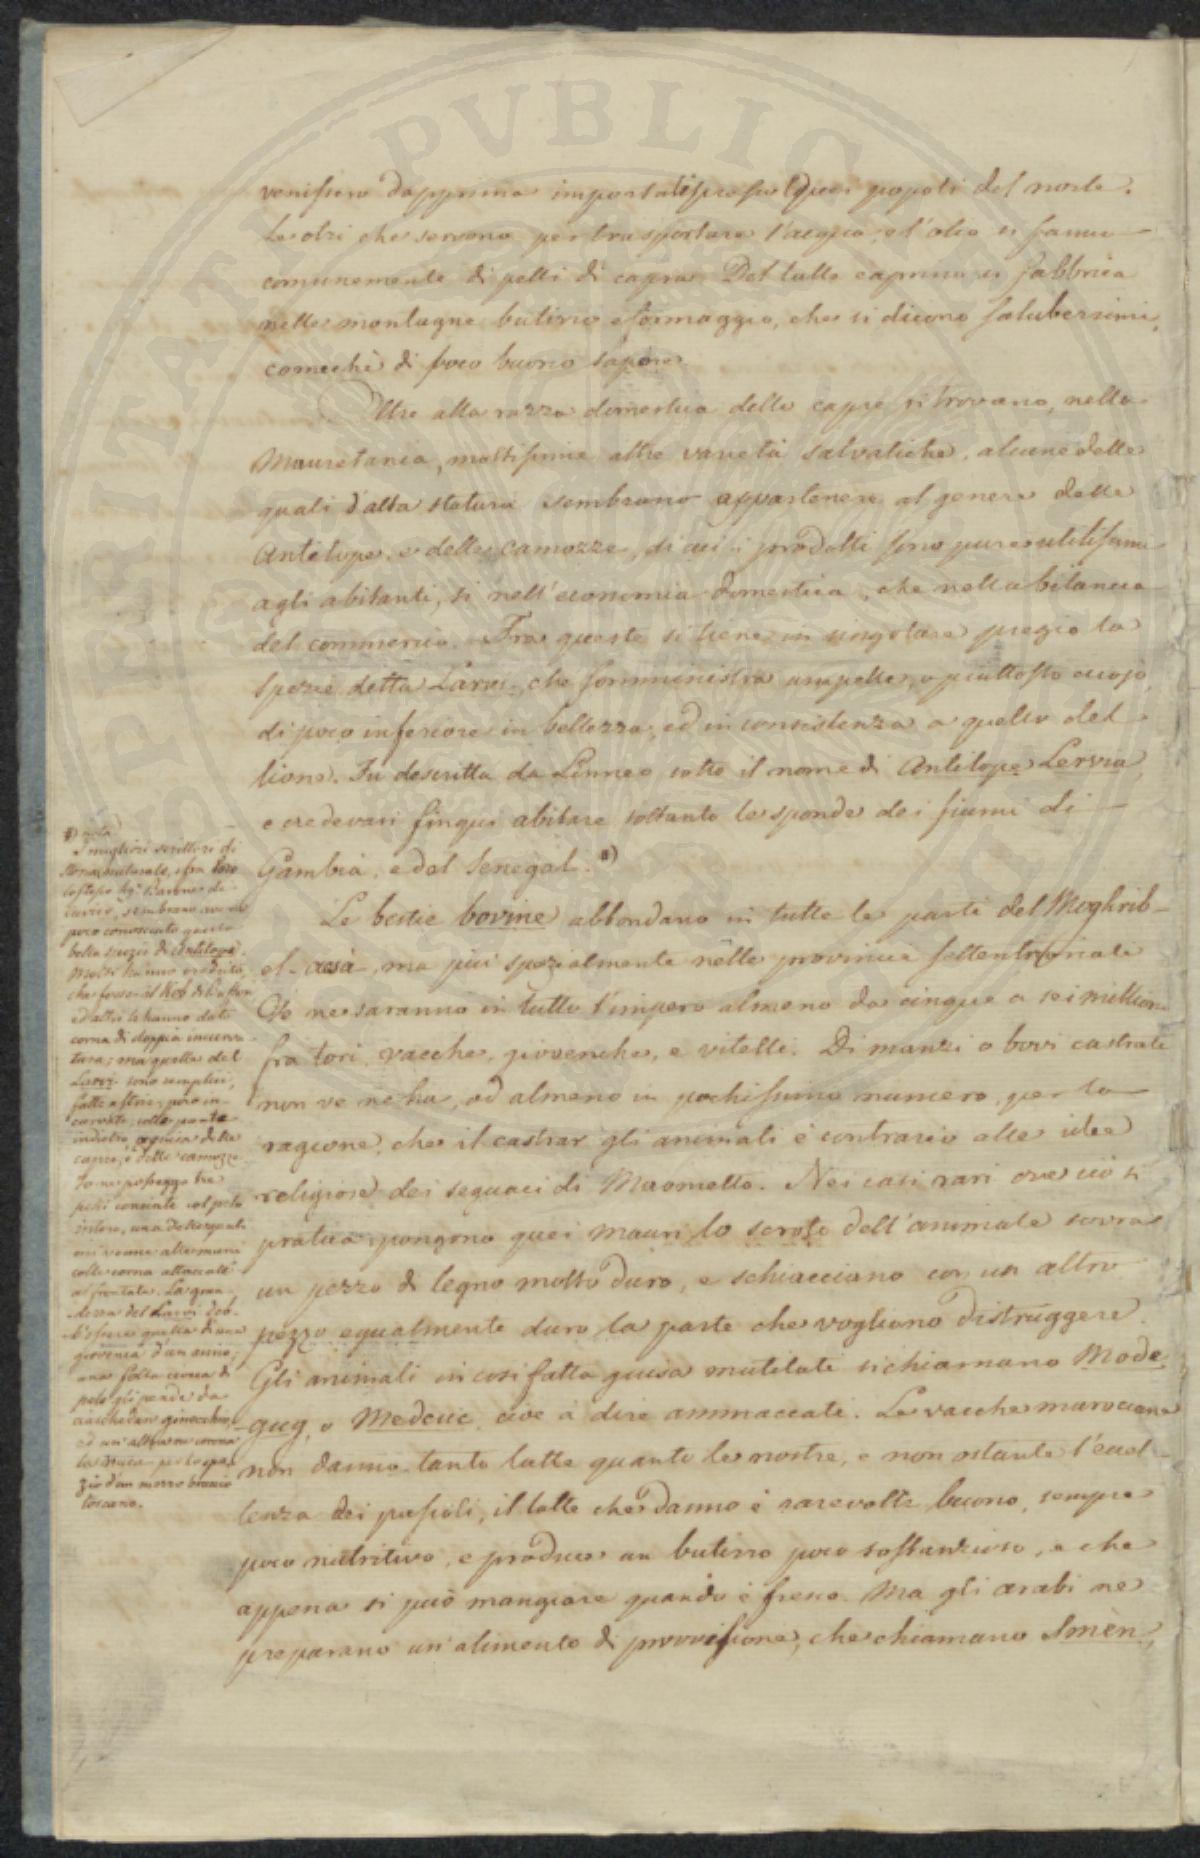 venissero dapprima importati presso quei popoli del norte.
Le otri che servono per trasportare l'acqua e l'olio si fanno
comunemente di pelli di capra. Del latte caprino si fabbrica
nelle montagne butirro e formaggio, che si dicono saluberrimi,
comechè di poco buono sapore.
Oltre alla razza domestica delle capre si trovano, nella
Mauretania, moltissime altre varietà salvatiche, alcune delle
quali d'alta statura sembrano appartenere al genere delle
Antelope, e delle Camozze, di cui i prodotti sono pure utilissimi
agli abitanti, sì nell'economia domestica, che nella bilancia
del commercio. Fra queste si tiene in singolare pregio la
spezie detta Larvi, che somministra una pelle, o piuttosto cuojo,
di poco inferiore in bellezza, ed in consistenza a quello del
lione. Fu descritta da Linneo sotto il nome di Antilope Lervia,
e credevasi finqui abitare soltanto le sponde dei fiumi di
Gambia, e del Senegal. *)
Le bestie bovine abbondano in tutte le parti del Moghrib-
el-acsà, ma più spezialmente nelle provincie settentrionali
Ve ne saranno in tutto l'impero almeno da cinque a sei millioni
fra tori, vacche, giovenche, e vitelli. Di manzi o bovi castrati
non ve ne ha, od almeno in pochissimo numero, per la
ragione, che il castrar gli animali è contrario alle idee
religiose dei seguaci di Maometto. Nei casi rari ove ciò si
pratica, pongono quei mauri lo scroto dell'animale sovra
un pezzo di legno molto duro, e schiacciano con un altro
pezzo egualmente duro la parte che vogliono distruggere.
Gli animali in così fatta guisa mutilati si chiamano Mode-
gug, o Medcuc cive a dire ammaccati. Le vacche marocane
non danno tanto latte quanto le nostre, e non ostante l'eccel-
lenza dei pascoli, il latte che danno è rare volte buono, sempre
poco nutritivo, e produce un butirro poco sostanzioso, e che
appena si può mangiare quando è fresco. Ma gli arabi ne
preparano un alimento di provvisione, che chiamano Smèn,
*) nota
I migliori scrittori di
Storia naturale, e fra loro
lo stesso Sig.r Barone di
Cuvier, sembrano avere
poco conosciuto questa
bella spezie di Antilope.
Molti hanno creduto,
che fosse il Kob di Buffon
ed altri le hanno dato
corna di doppia incurva
tura; ma quelle del
Larvi sono semplici,
fatte a strie, però in-
curvate, colle punte
indietro a guisa delle
capre, e delle camozze.
Io ne posseggo tre
pelli conciate col pelo
intero, una delle quali
mi venne alle mani
colle corna attaccate
al frontale. La gran-
dezza del Larvi deb-
b'essere quella di una
giovenca d'un anno;
una folta criniera di
pelo gli pende da
ciaschedun ginocchio,
ed un'altra ne corona
la nuca per lo spa-
zio d'un mezzo braccio
toscano.